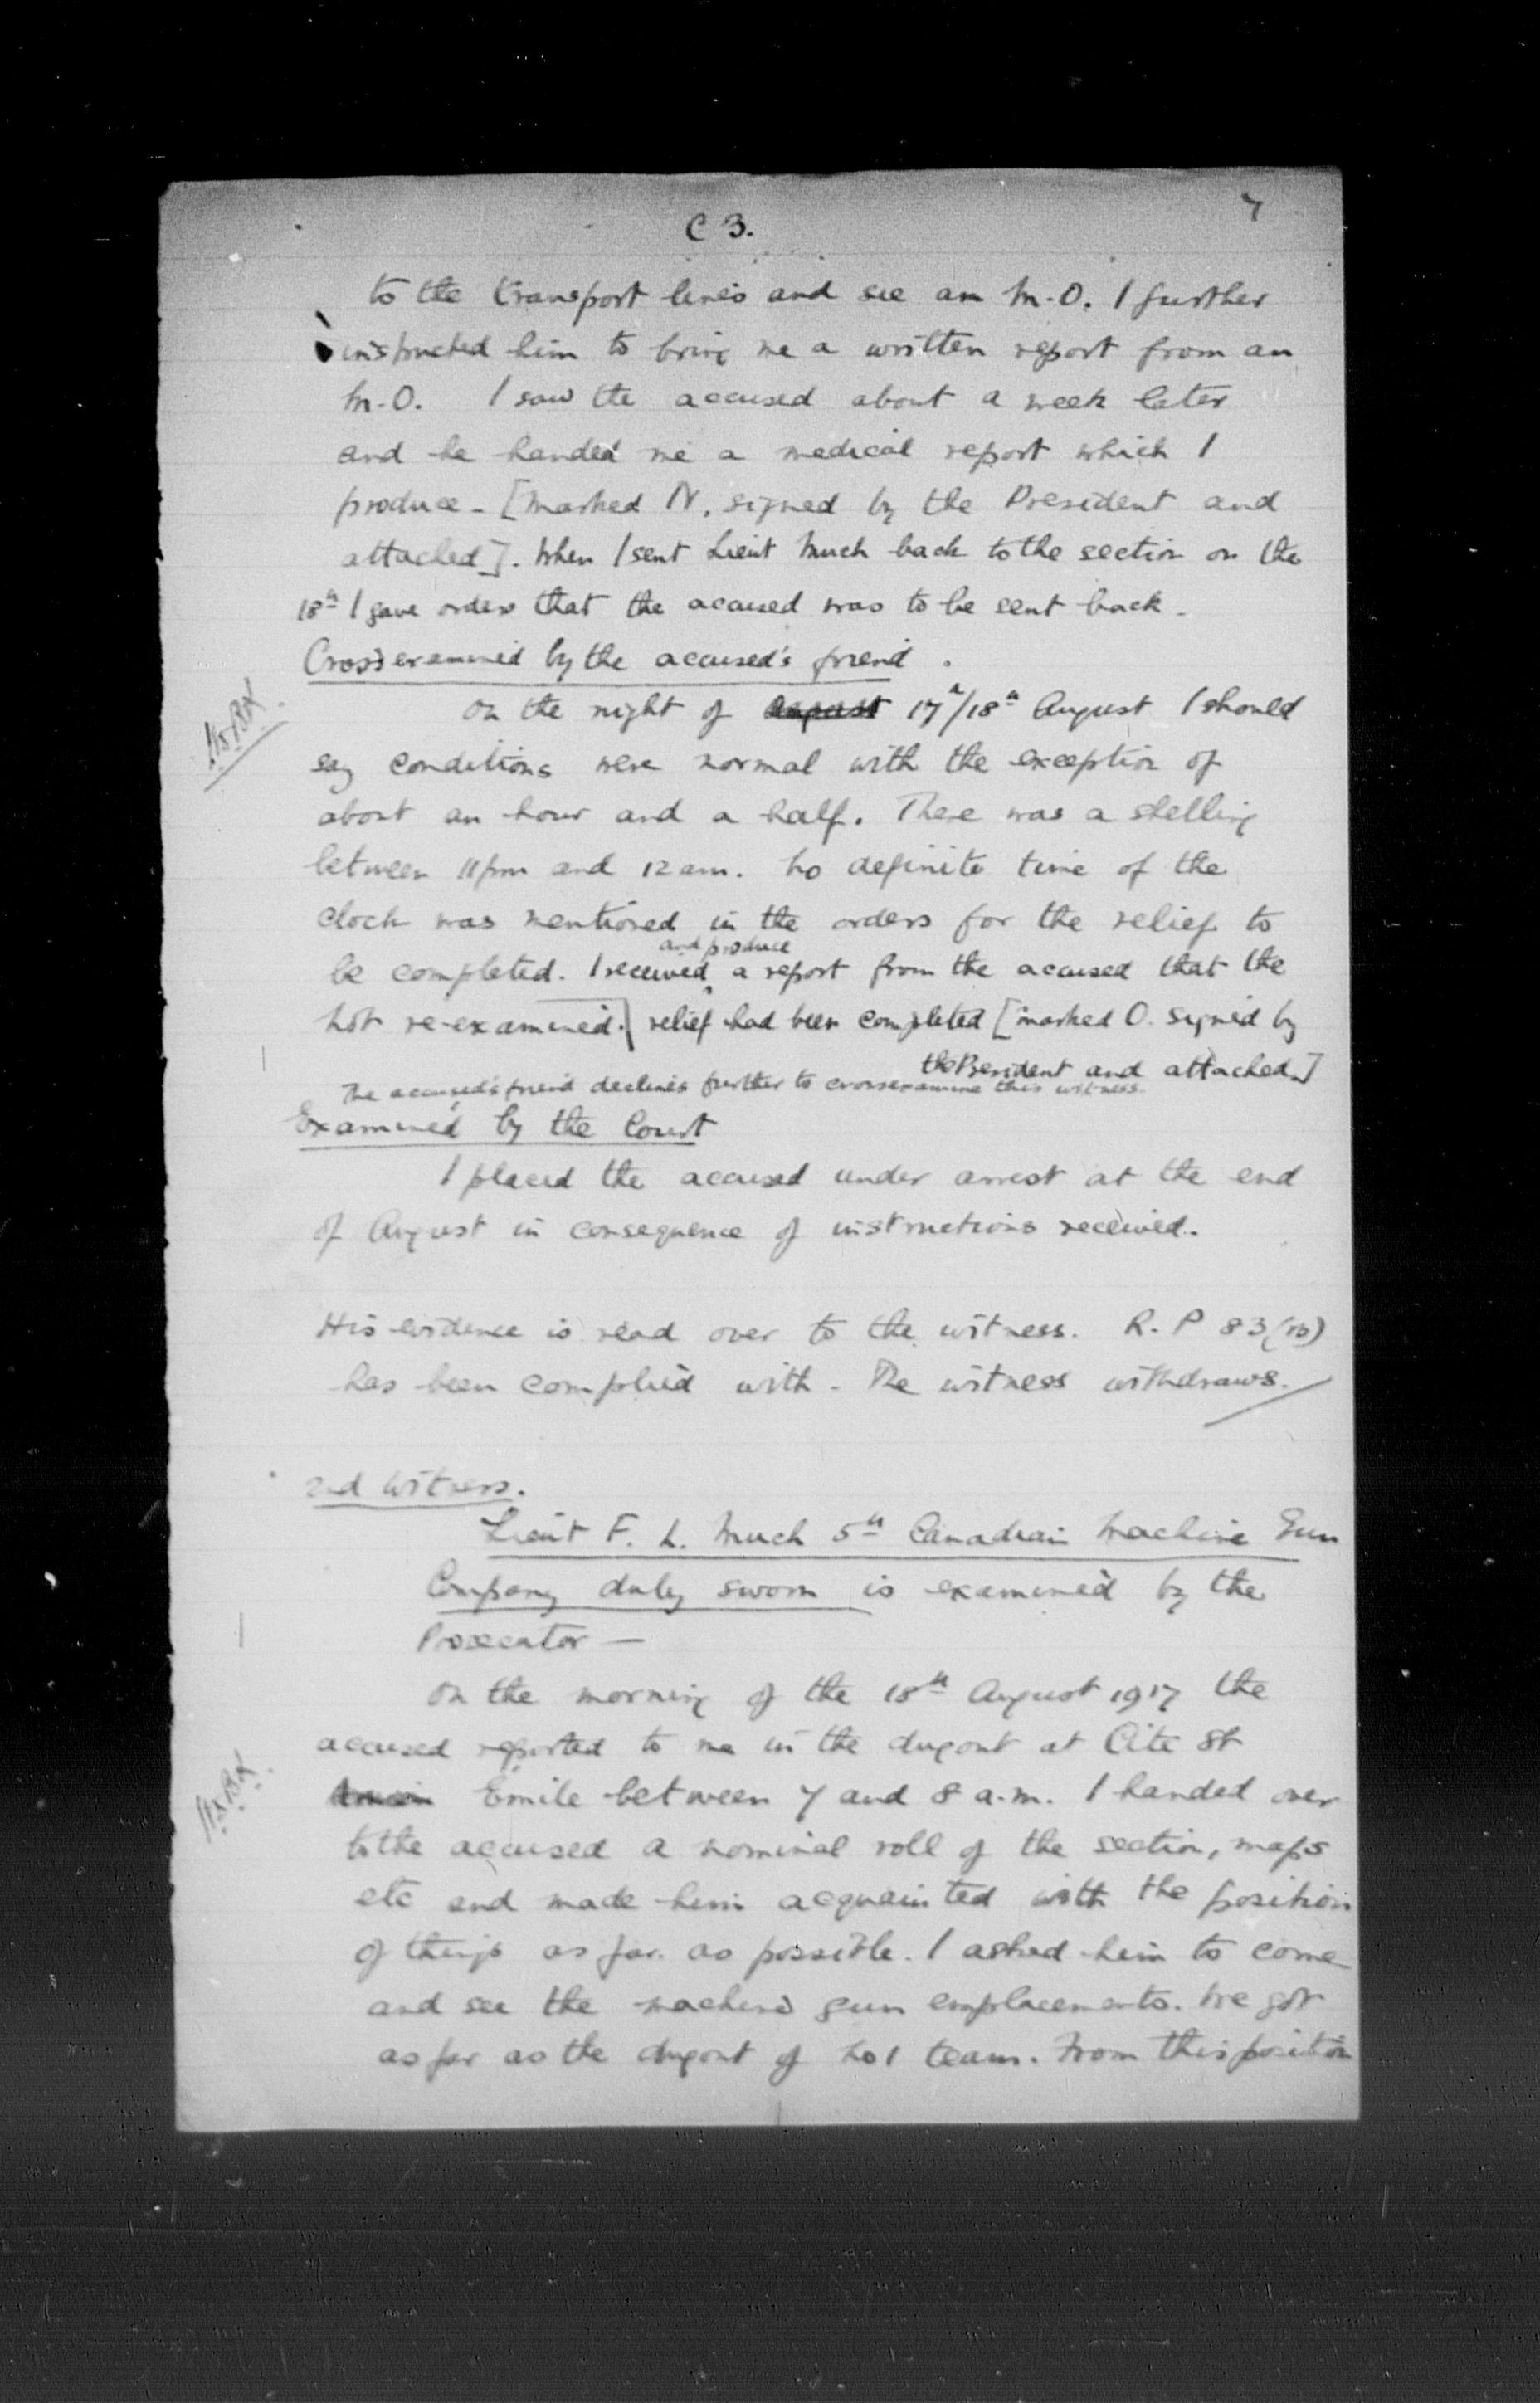 C 3.
7
to the transport lines and see an M.O. I further
instructed him to bring me a written report from an
M.O. I saw the accused about a week later
and he handed me a medical report which I
produce - [marked N, signed by the President and
attached]. When I sent Lieut Much back to the section on the
18th I gave orders that the accused was to be sent back -
Cross examined by the accused's friend.
On the night of August 17th/18th August I should
say conditions were normal with the exception of
about an hour and a half. There was a shelling
between 11pm and 12 am. No definite time of the
clock was mentioned in the orders for the relief to
and produce
be completed. I received a report from the accused that the
Not re-examined. relief had been completed [marked O. signed by
the President and attached]
The accused's friend declines further to crossexamine this witness.
Examined by the Court
I placed the accused under arrest at the end
of August in consequence of instructions received.
His evidence is read over to the witness. R.P 83(B)
has been complied with - The witness withdraws.
2nd Witness.
Lieut F. L. Much 5th Canadian Machine Gun
Company duly sworn is examined by the
Prosecutor —
On the morning of the 18th August 1917 the
accused reported to me in the dugout at Cite St
Emile between 7 and 8 a.m. I handed over
to the accused a nominal roll of the section, maps
etc and made him acquainted with the position
of things as far as possible. I asked him to come
and see the machine gun emplacements. We got
as far as the dugout of No 1 team. From this position